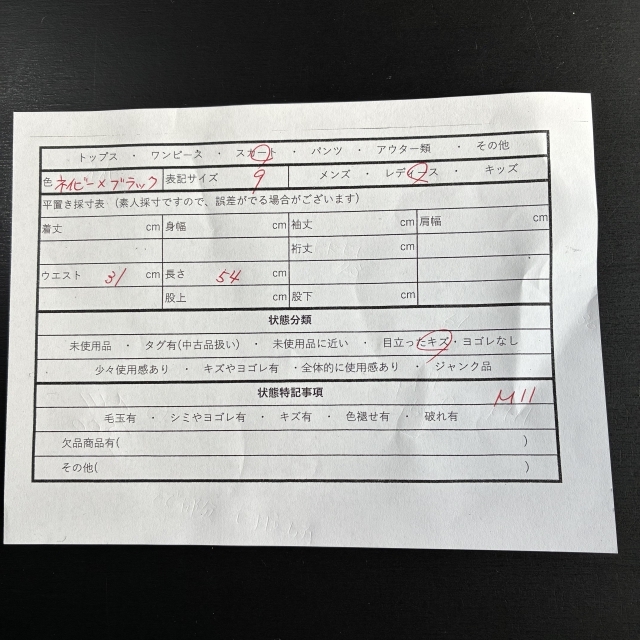 トップス ・ ワンピース ・ スカート ・ パンツ ・ アウター類 ・ その他
色 ネイビー×ブラック 表記サイズ 9 メンズ ・ レディース ・ キッズ
平置き採寸表 (素人採寸ですので、誤差がでる場合がございます)
着丈 cm 身幅 cm 袖丈 cm 肩幅 cm
裄丈 cm
ウエスト 31 cm 長さ 54 cm
股上 cm 股下 cm
状態分類
未使用品 ・ タグ有(中古品扱い) ・ 未使用品に近い ・ 目立ったキズ・ヨゴレなし
少々使用感あり ・ キズやヨゴレ有 ・全体的に使用感あり ・ ジャンク品
状態特記事項 M11
毛玉有 ・ シミやヨゴレ有 ・ キズ有 ・ 色褪せ有 ・ 破れ有
欠品商品有( )
その他( )